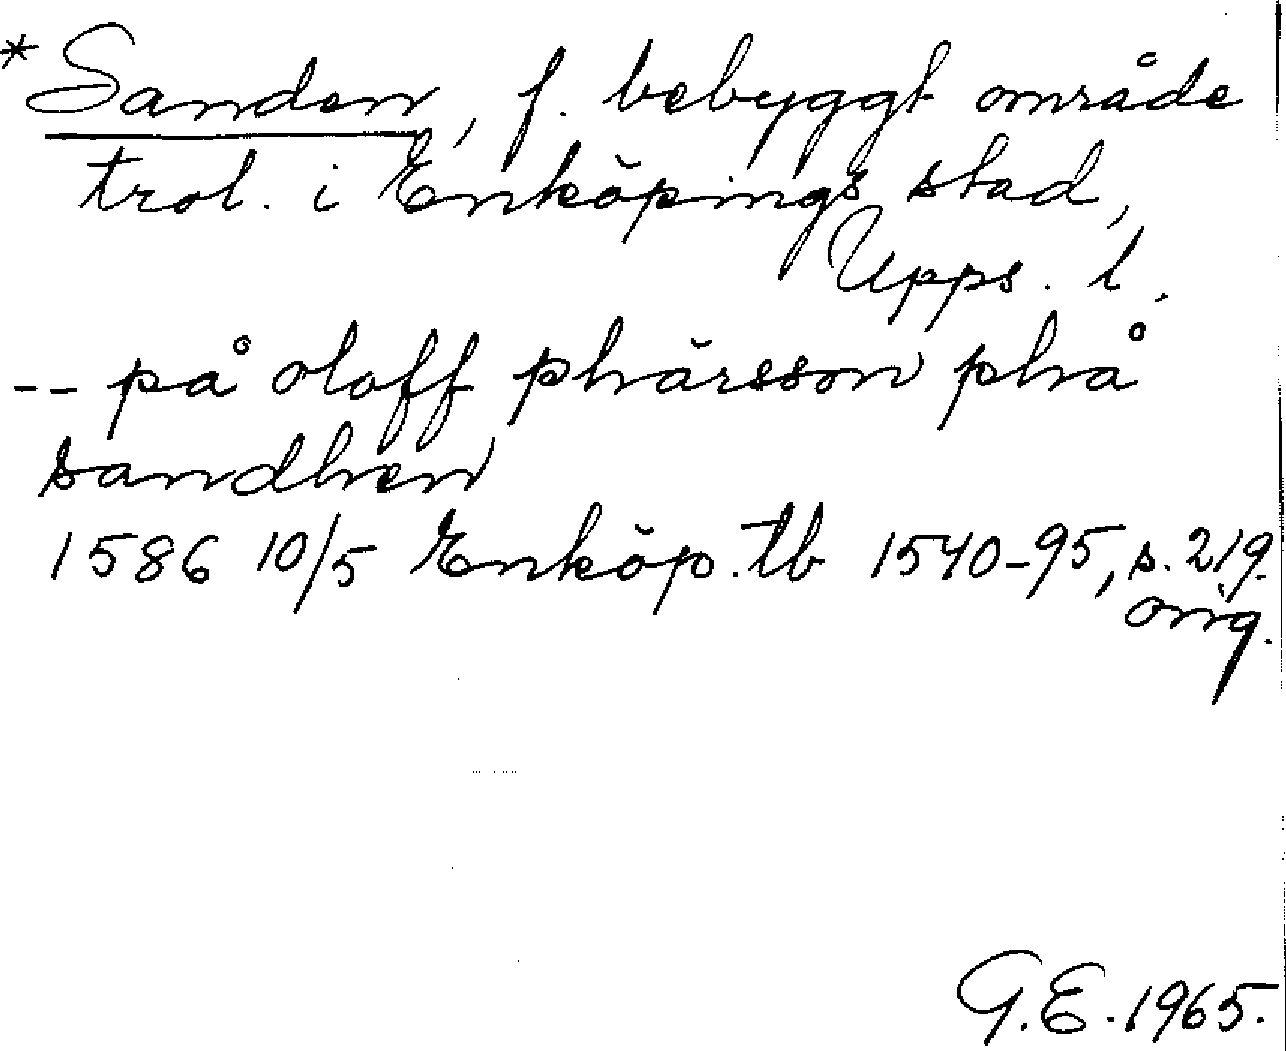 * Sanden, f. bebyggt område
trol. i Enköpings stad,
Upps. l.
-- på oloff phärsson phå
sandhen
1586 10/5 Enköp. tb 1540-95, s. 219.
orig.
G.E. 1965.